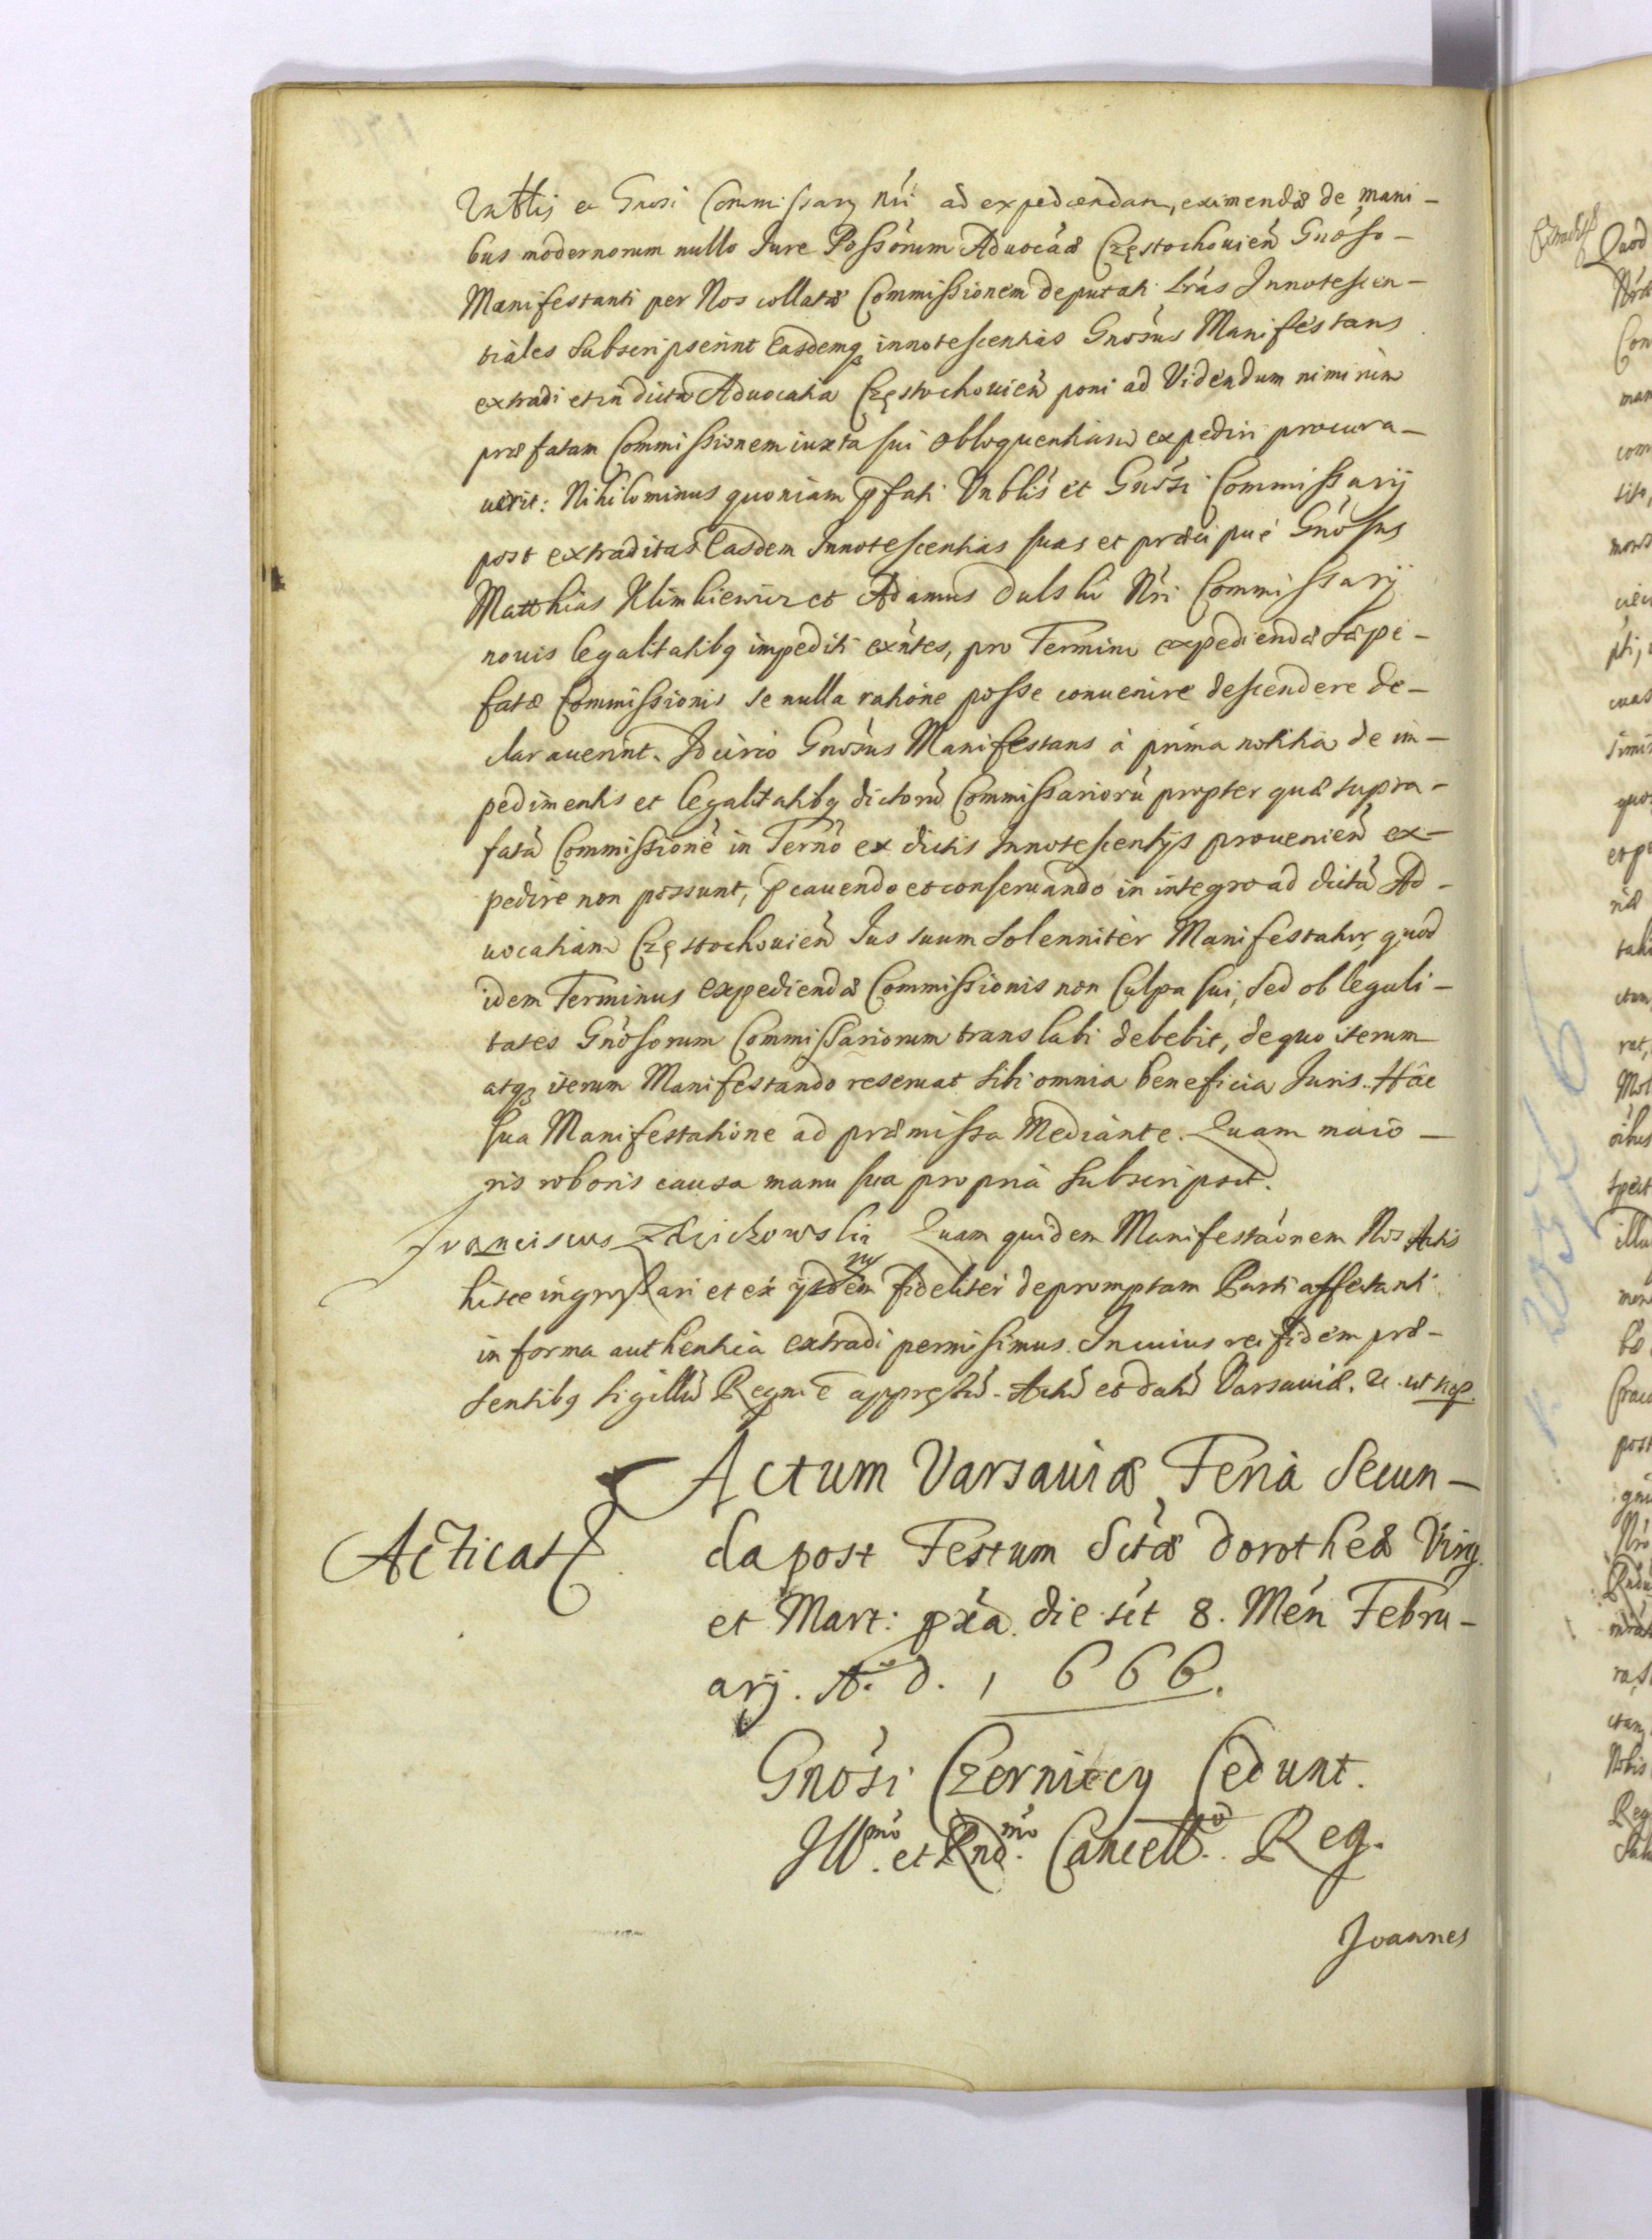 Vnblis et Gnosi Commissarij Nri ad expediendam, eximendæ de mani-
bus modernorum nullo Jure Possorum Aduocaæ Częstochouien Gnoso-
Manifestanti per Nos collatæ Commissionem deputati Lras Innotescen-
tiales subscripserint Easdemq innotescentias Gnosus Manifestans
extradi et in dicta Aduocatia Częstochouien poni ad Videndum nimirum
præfatam Commissionem iuxta sui obloquentiam expediri procura-
uerit: Nihilominus quoniam pfati Vnblis et Gnosi Commissarij
post extraditas Easdem Innotescentias suas et præcipue Gnosus
Matthias Klimkiewicz et Adamus Dulski Nri Commissarij
nouis legalitatibq impediti exntes, pro Termino expediendæ sæpe-
fatæ Commissionis se nulla ratione posse conuenire descendere de-
clarauerint. Idcirco Gnosus Manifestans à prima notitia de im-
pedimentis et legalitatibq dictorū Commissariorū propter quæ supra-
fatā Commissionē in Terno ex dictis Innotescentijs prouenien ex-
pedire non possunt, pcauendo et conseruando in integro ad dictā Ad-
uocatiam Częstochouien Jus suum solenniter Manifestatur, quod
idem Terminus expediendæ Commissionis non Culpa sui, sed ob legali-
tates Gnosorum Commissariorum translabi debebit, de quo iterum
atqз iterum Manifestando reseruat sibi omnia beneficia Juris. Hâc
sua Manifestatione ad præmissa Mediante. Quam maio-
ris roboris causa manu sua propria subscripsit.
Franciscus Quam quidem Manifestaonem Nos Actis
hisce ingrossari et ex ijsdem fideliter depromptam Parti affectanti
in forma authentica extradi permisimus. In cuius rei fidem præ-
sentibq sigillū Regni ē appressū. Actū et datū Varsauiæ. &c. ut sup.
Acticat
Actum Varsauiæ Feria Secun-
da post Festum Sctæ Dorotheæ Virg.
et Mart: pxa. die sct 8. Men Febru-
arij. A. D. 1666.
Gnosi Czerniccy Cedunt.
Illmo. et Rndmo. Cancello. Reg.
Joannes